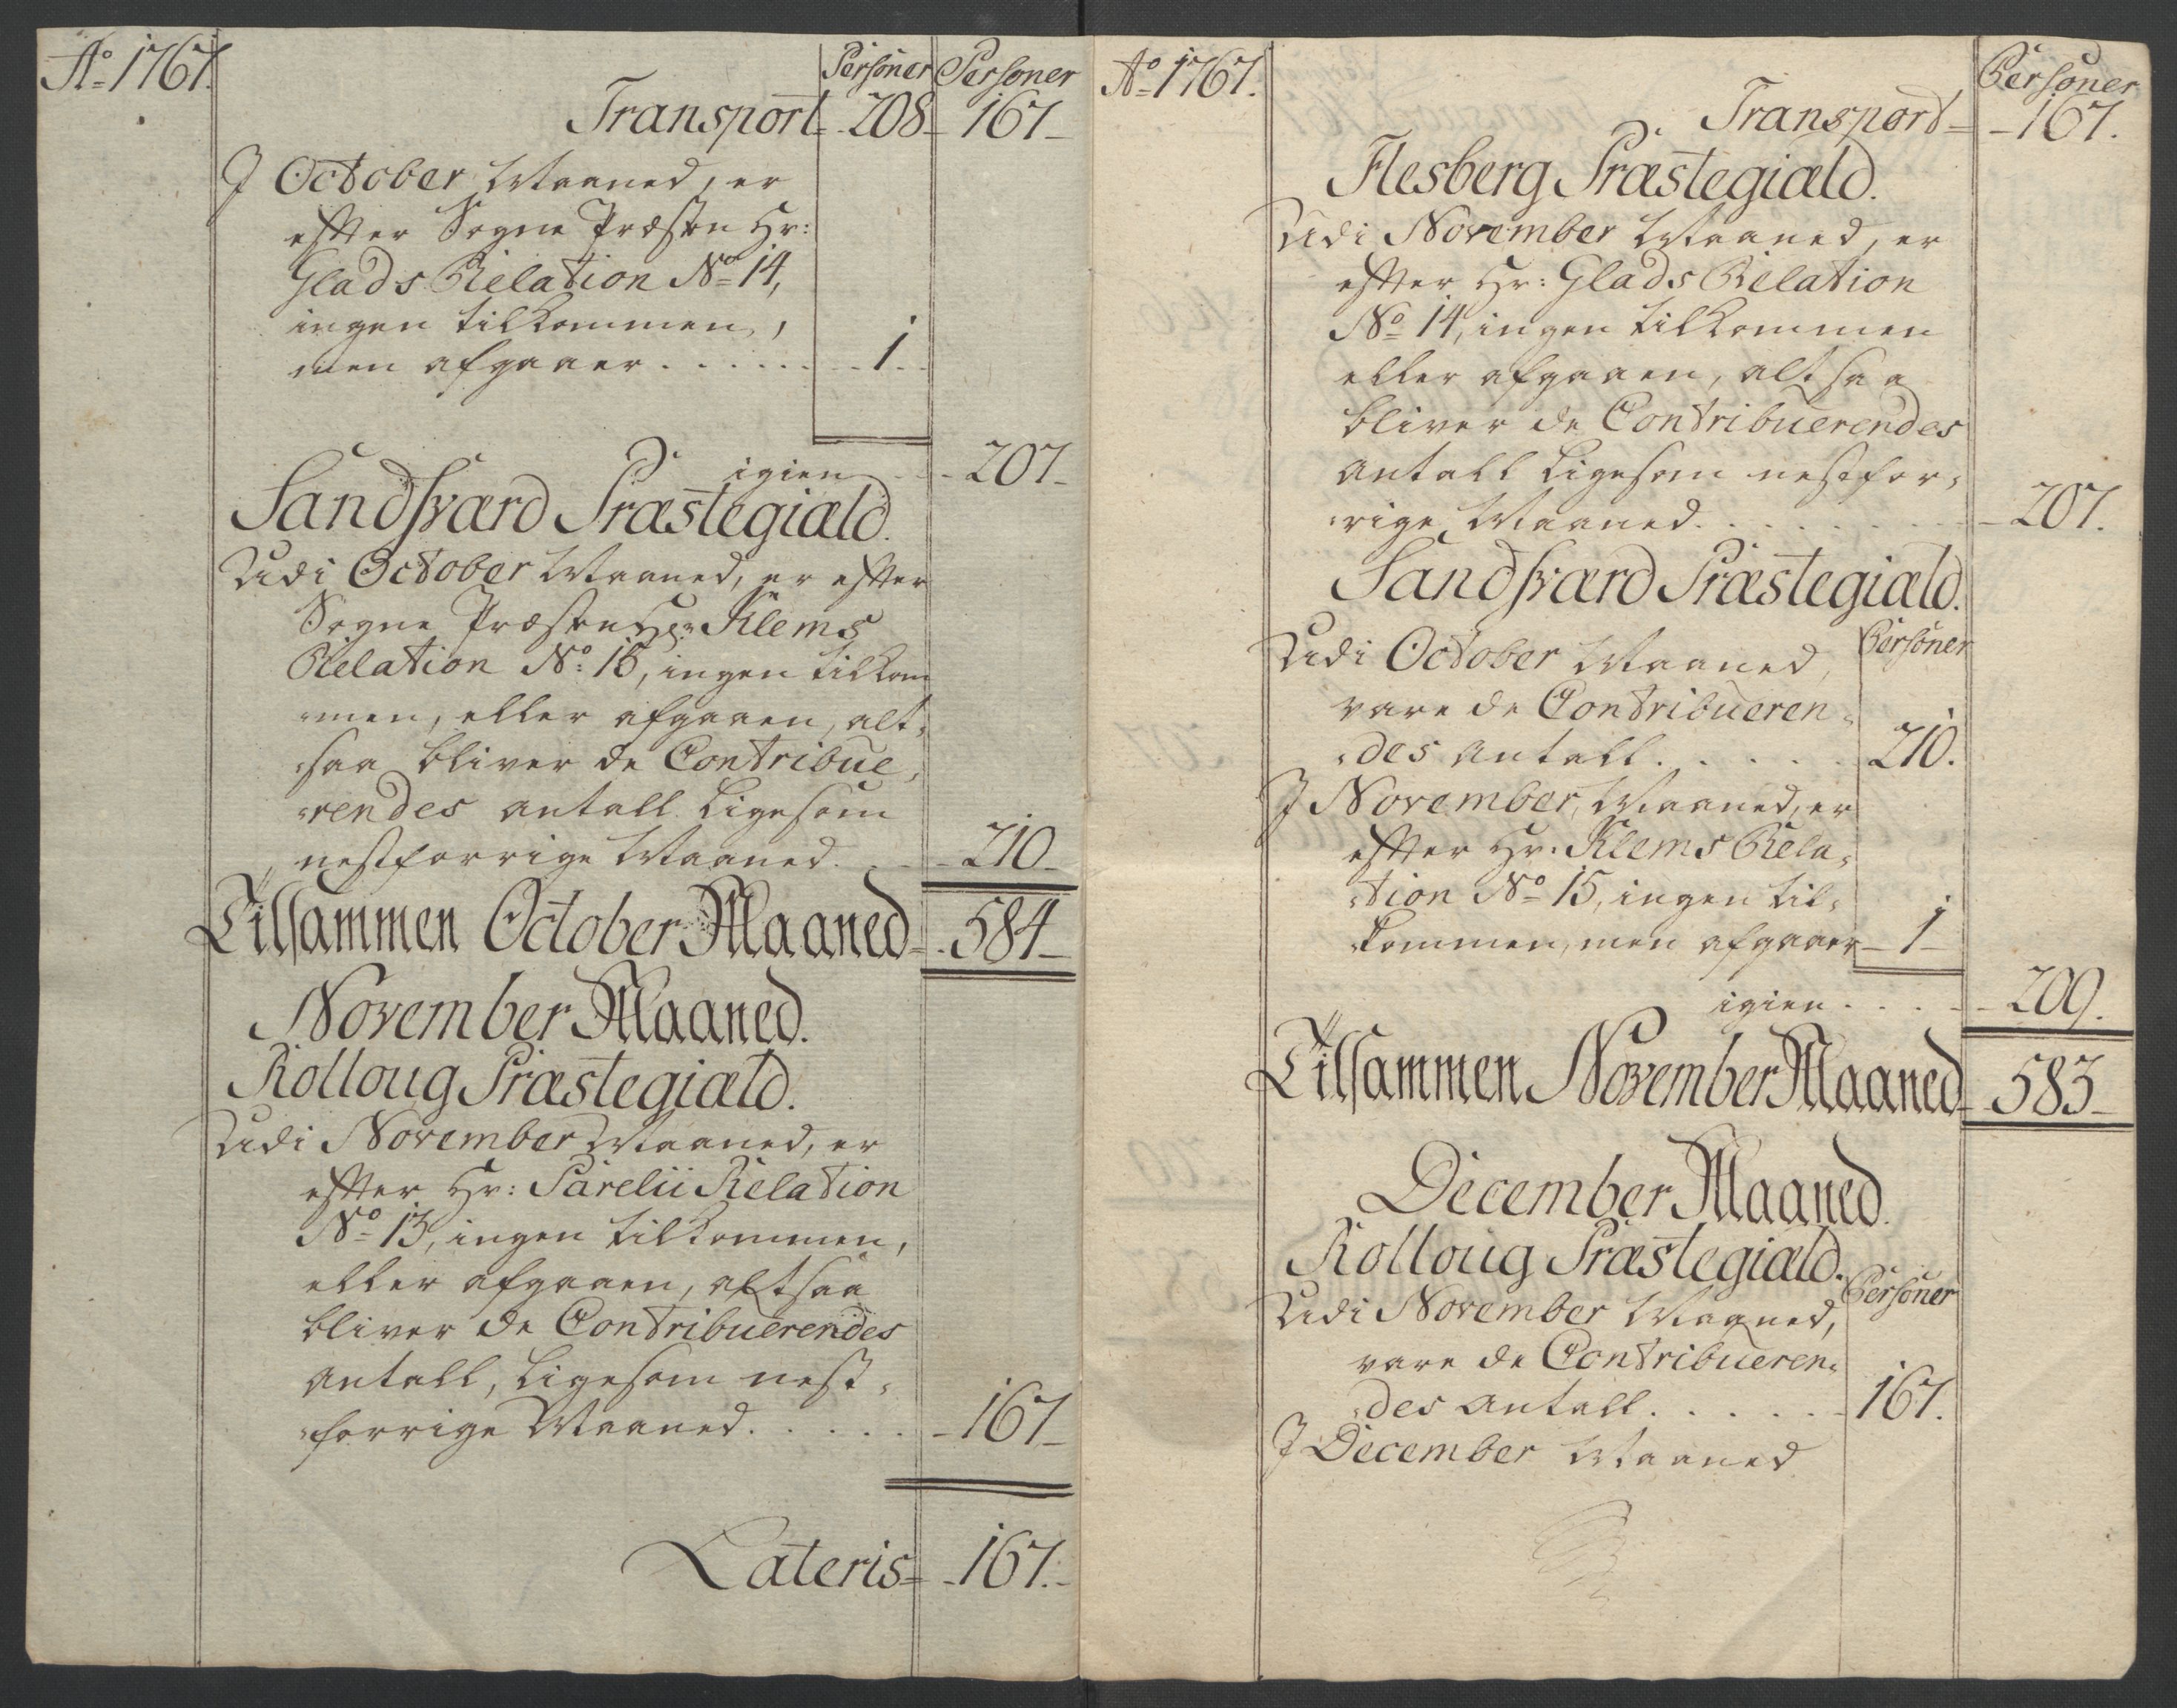 Ao 1767.
Personer Personer
Transport 208 167
I October Maaned, er
efter Sogne Præsten Hr:
Glads Relation No 14,
ingen tilkommen,
men afgaaer . . . . . . 1
igien . . 207
Sandsværd Præstegiæld.
Udi October Maaned, er efter
Sogne Præsten Hr: Klems
Relation No: 15, ingen tilkom
men, eller afgaaen, alt-
saa bliver de Contribue-
rendes antall ligesom
nestforrige Maaned. . 210
Tilsammen October Maaned 584
November Maaned.
Rolloug Præstegiæld.
Udi November Maaned, er
efter Hr: Parelii Relation
No 13, ingen tilkommen,
eller afgaaen, altsaa
bliver de Contribuerendes
antall, ligesom nest-
forrige Maaned. . . . . 167
Lateris 167.
Ao 1767.
Personer
Transport 167.
Flesberg Præstegiæld.
Udi November Maaned, er
efter Hr: Glads Relation
No 14, ingen tilkommen
eller afgaaen, altsaa
bliver de Contribuerendes
antall ligesom nestfor-
rige Maaned. . . . . . . 207.
Sandsværd Præstegiæld.
Personer
Udi October Maaned,
vare de Contribueren-
des antall. . . . . 210.
I November Maaned, er
efter Hr. Klems Rela-
tion No 15, ingen til-
kommen, men afgaaer 1
igien . . . . 209.
Tilsammen November Maaned 583
December Maaned.
Rolloug Præstegiæld.
Personer
Udi November Maaned,
vare de Contribueren-
des antall. . . . . . 167.
I December Maaned